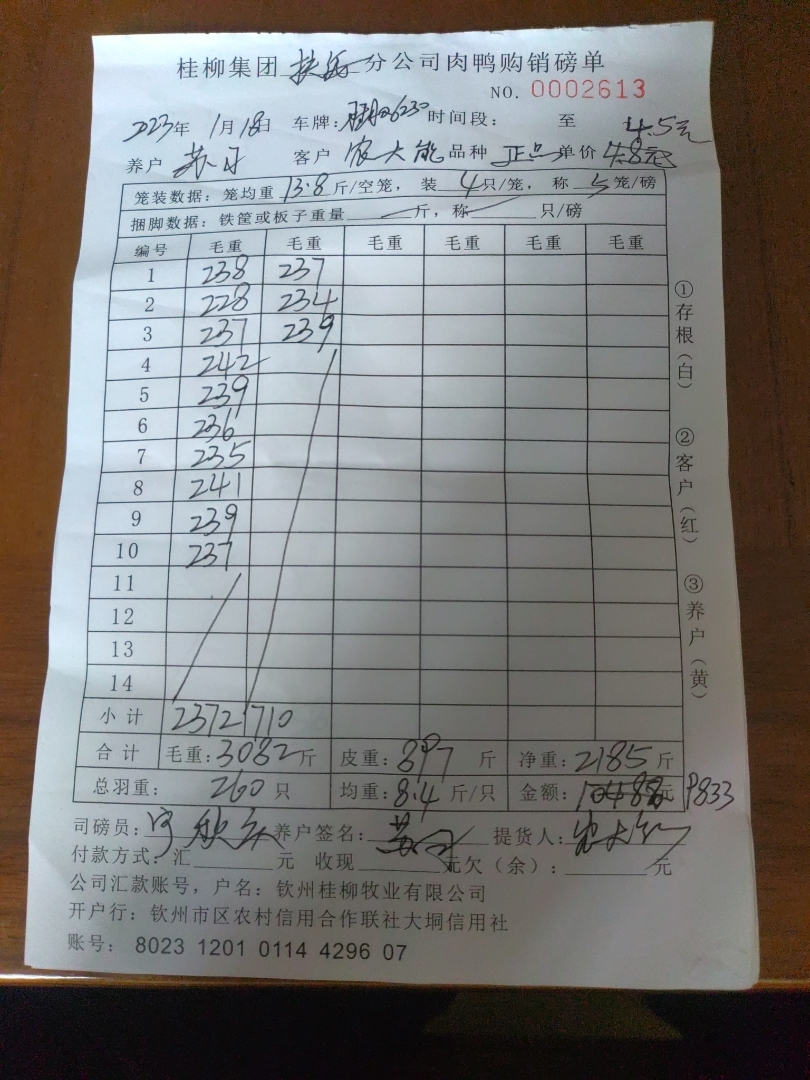 桂柳集团 扶绥 分公司肉鸭购销磅单
NO. 0002613
2023年 1月18日 车牌: 时间段: 至 4.5元
养户 苏 客户 农大能 品种 正品 单价 4.8元
笼装数据: 笼均重 13.8 斤/空笼, 装 4 只/笼, 称 5 笼/磅
捆脚数据: 铁筐或板子重量 斤, 称 只/磅
编号 毛重 毛重 毛重 毛重 毛重 毛重
1 238 237
2 228 234
3 237 239
4 242
5 239
6 236
7 235
8 241
9 239
10 237
11
12
13
14
小计 2372 710
合计 毛重: 3082 斤 皮重: 897 斤 净重: 2185 斤
总羽重: 260 只 均重: 8.4 斤/只 金额: 10488 元 9833
司磅员: 养户签名: 苏 提货人: 农大能
付款方式: 汇 元 收现 元欠(余): 元
公司汇款账号, 户名: 钦州桂柳牧业有限公司
开户行: 钦州市区农村信用合作联社大垌信用社
账号: 8023 1201 0114 4296 07
①存根(白) ②客户(红) ③养户(黄)